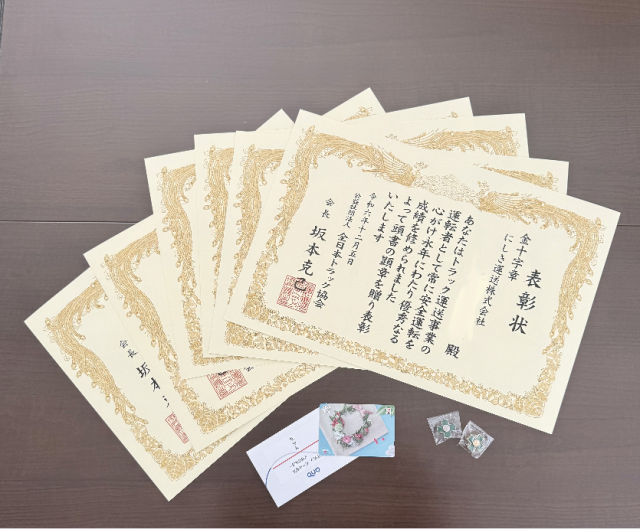 表彰状
金十字章
にしき運送株式会社
殿
あなたはトラック運送事業の
運転者として常に安全運転を
心がけ永年にわたり優秀なる
成績を修められました
よって頭書の顕章を贈り表彰
いたします
令和六年十二月五日
公益社団法人 全日本トラック協会
会長 坂本克己
会長 坂本
QUO